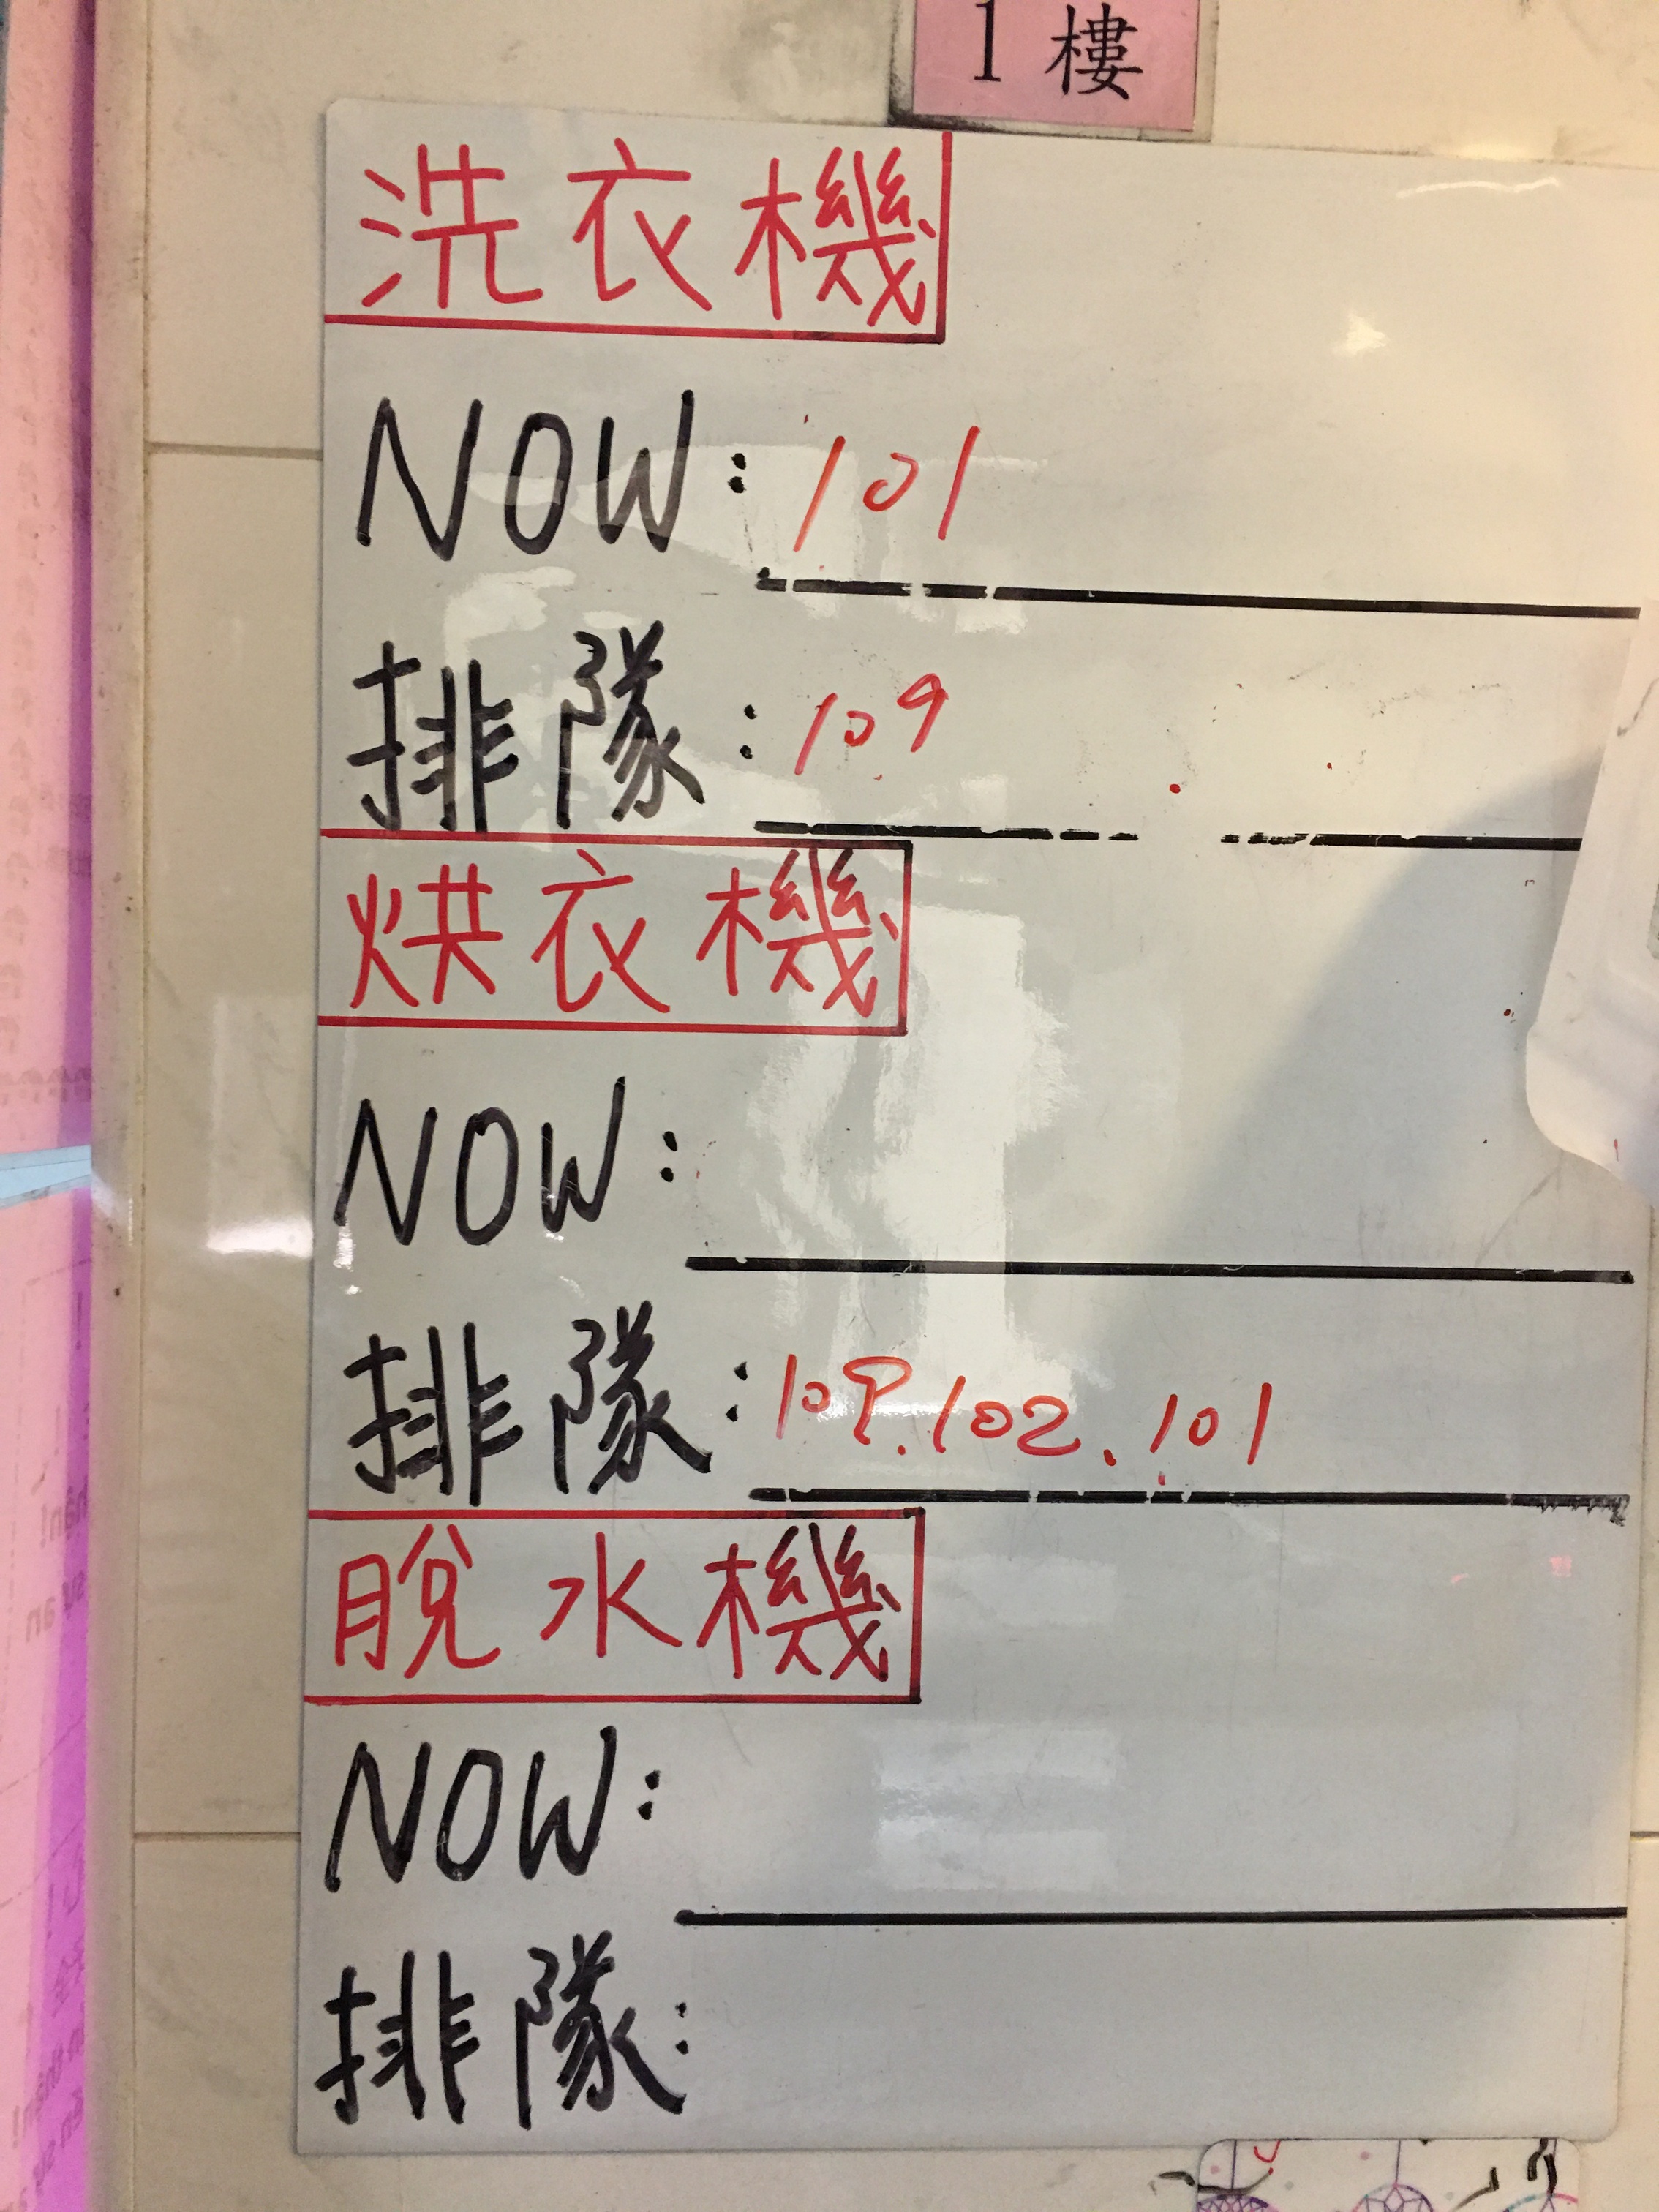 1 樓
洗衣機
NOW: 101
排隊: 109
烘衣機
NOW:
排隊: 109. 102. 101
脫水機
NOW:
排隊: